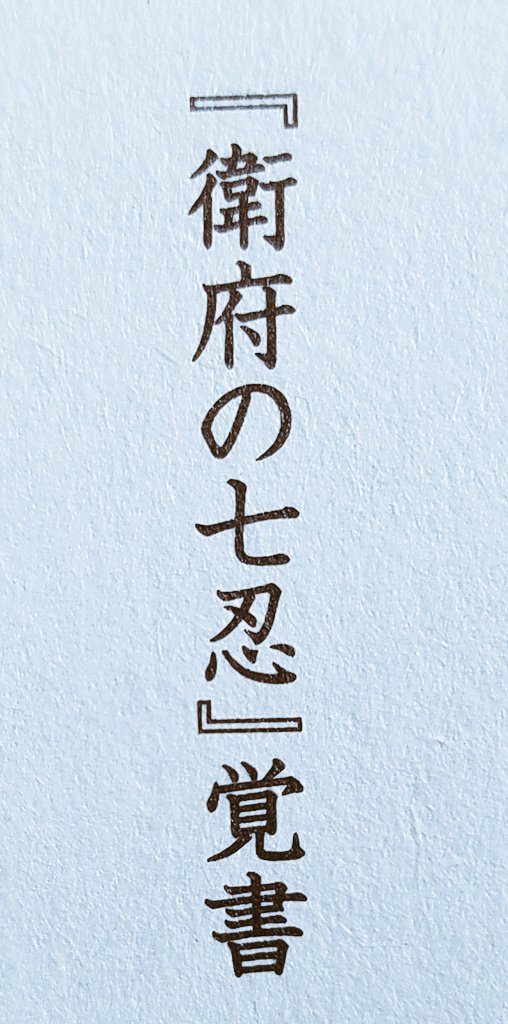 『衛府の七忍』覚書